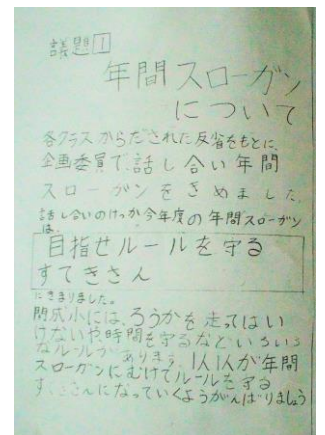 議題1
年間スローガン
について
各クラスからだされた反省をもとに、
企画委員で、話し合い年間
スローガンをきめました。
話し合いのけっか今年度の年間スローガン
は、
目指せルールを守る
すてきさん
にきまりました。
開成小には、ろうかを走ってはい
けないや時間を守るなどいろいろ
なルールがあります。1人1人が年間
スローガンにむけてルールを守る
すてきさんになっていくようがんばりましょう